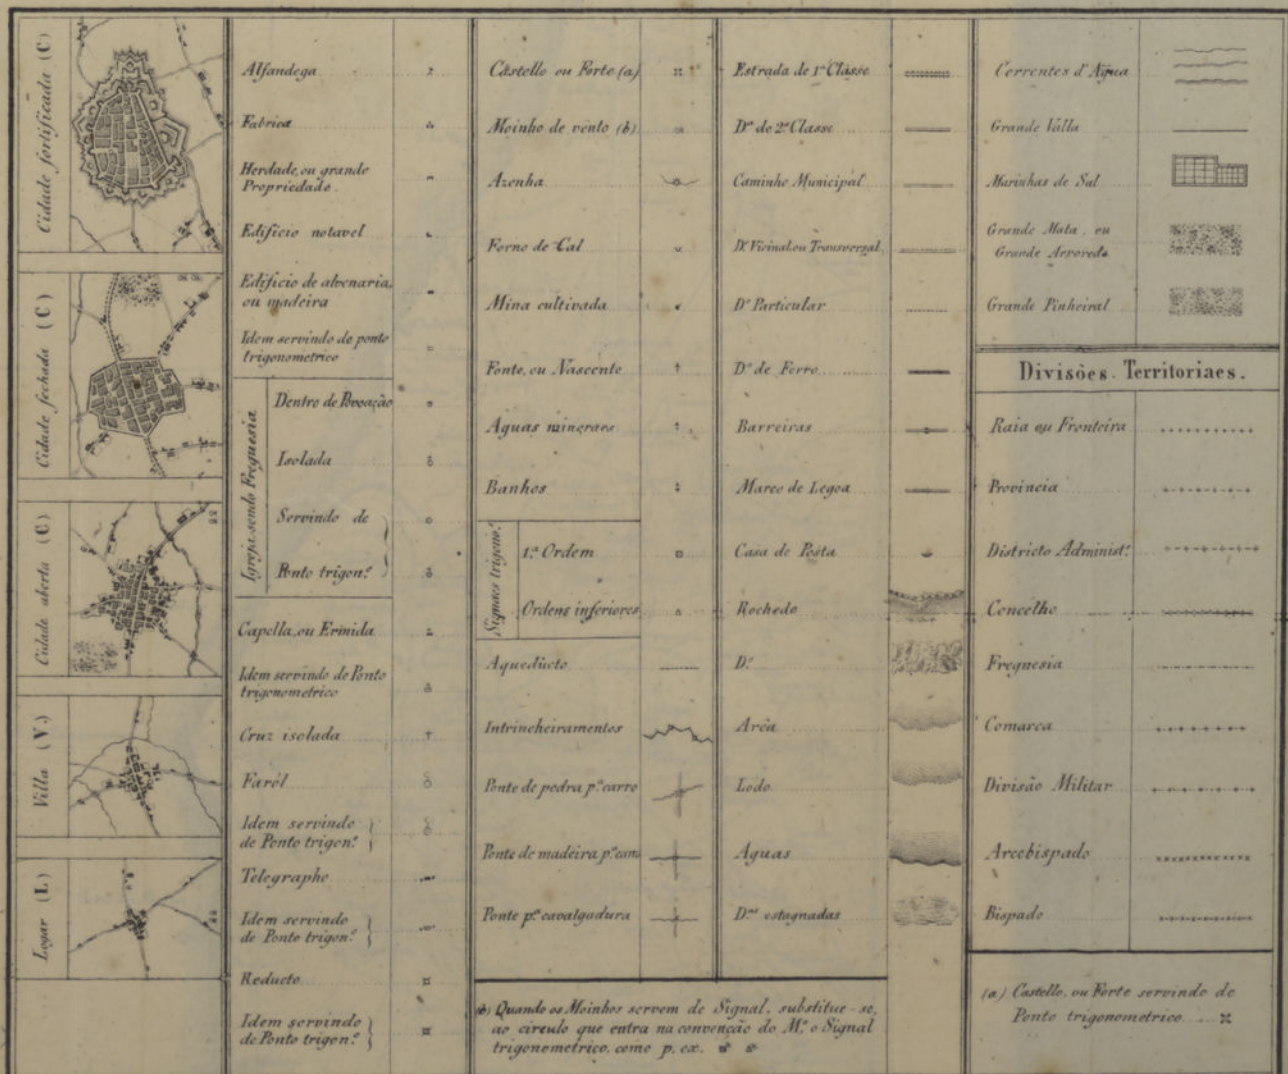 Cidade fortificada (C)
Cidade fechada (C)
Cidade aberta (C)
Villa (V.)
Logar (L)
Alfandega
Fabrica
Herdade, ou grande
Propriedade.
Edificio notavel
Edificio de alvenaria,
ou madeira
Idem servindo de ponto
trigonometrico
Igreja, sendo Freguesia
Dentro de Povoação
Isolada
Servindo de
Ponto trigon.º
Capella, ou Ermida
Idem servindo de Ponto
trigonometrico
Cruz isolada
Faról
Idem servindo
de Ponto trigon.º
Telegrapho
Idem servindo
de Ponto trigon.º
Reducto
Idem servindo
de Ponto trigon.º
Castello ou Forte (a)
Moinho de vento (b)
Azenha
Forno de Cal
Mina cultivada
Fonte, ou Nascente
Aguas mineraes
Banhos
Signaes trigono.
1.ª Ordem
Ordens inferiores
Aqueducto
Intrincheiramentos
Ponte de pedra p.ª carro
Ponte de madeira p.ª carro
Ponte p.ª cavalgadura
Estrada de 1.ª Classe
D.ª de 2.ª Classe
Caminho Municipal
D.º Vicinal, ou Transversal
D.º Particular
D.º de Ferro
Barreiras
Marco de Legoa
Casa de Posta
Rochedo
D.º
Arêa
Lodo
Aguas
D.as estagnadas
(b) Quando os Moinhos servem de Signal, substitue-se,
ao circulo que entra na convenção do M.º o Signal
trigonometrico, como p. ex.
Correntes d'Agua
Grande Valla
Marinhas de Sal
Grande Mata, ou
Grande Arvoredo
Grande Pinheiral
Divisões Territoriaes.
Raia ou Fronteira
Provincia
Districto Administ.º
Concelho
Freguesia
Comarca
Divisão Militar
Arcebispado
Bispado
(a) Castello, ou Forte servindo de
Ponto trigonometrico